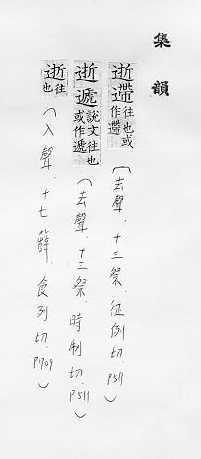 集韻
逝遰往也或作遰（去聲．十三祭．征例切．P511）
逝遞說文往也或作遞（去聲．十三祭．時制切．P511）
逝往也（入聲．十七薛．食列切．P709）